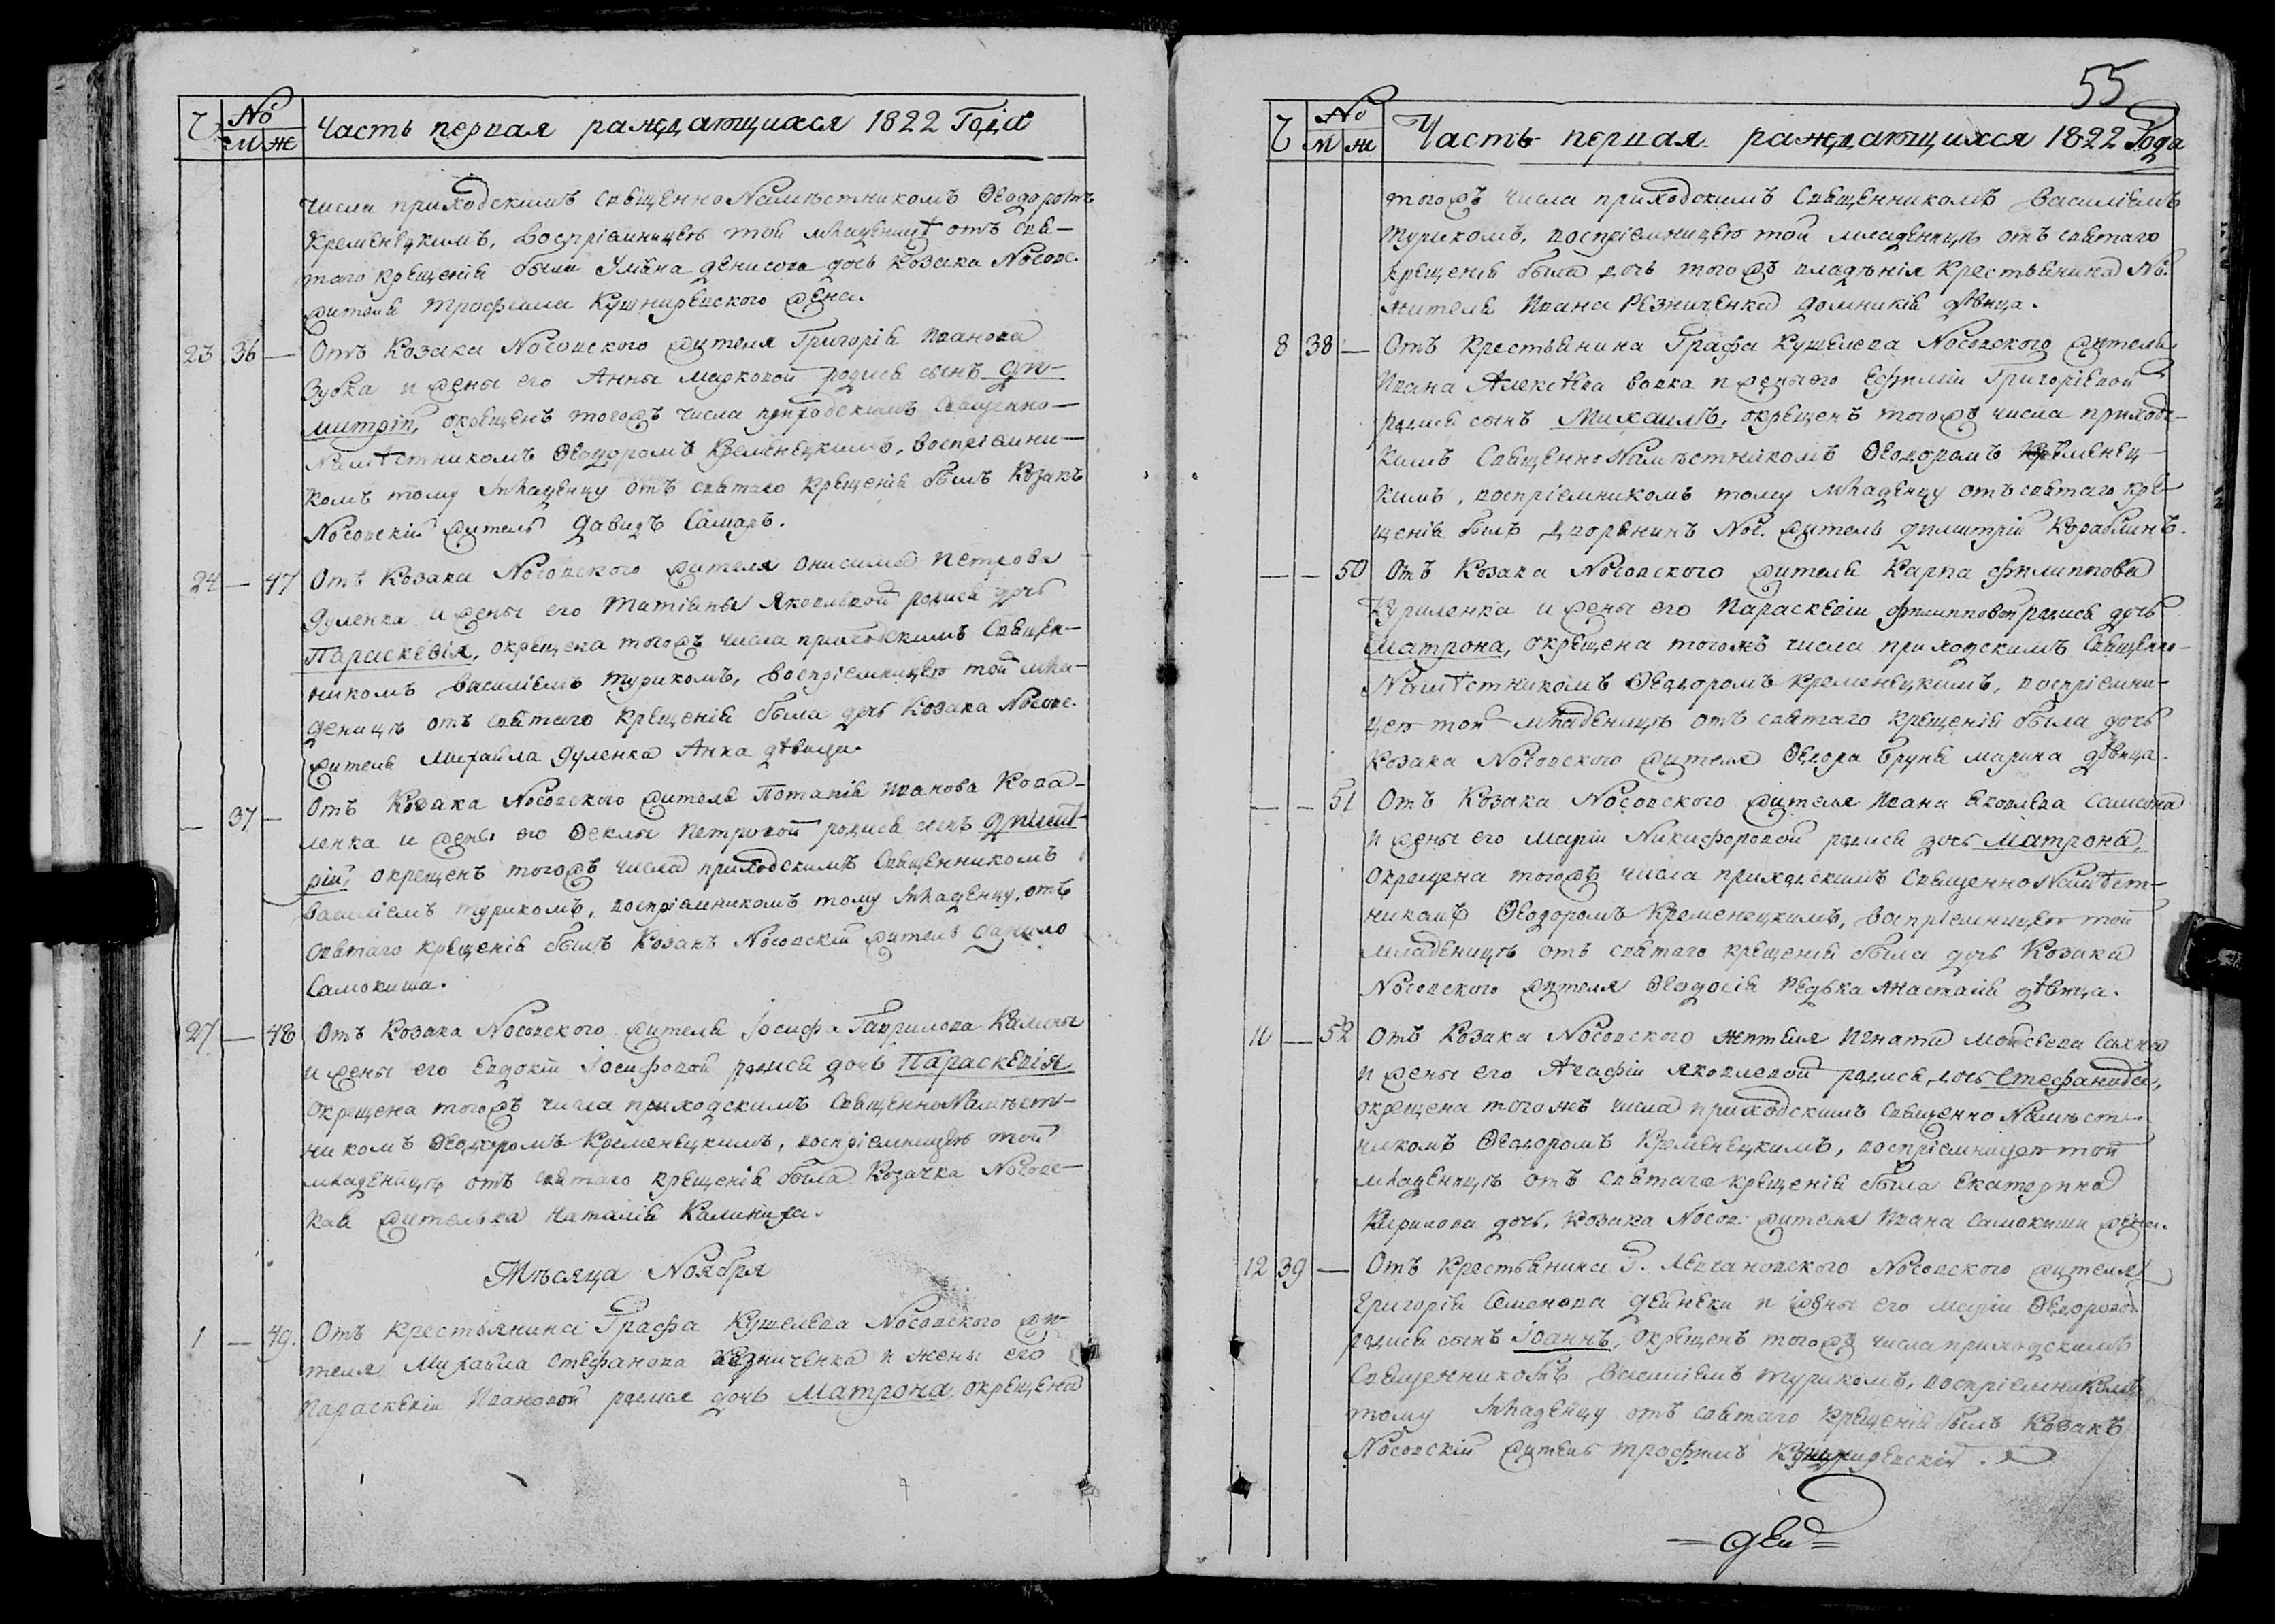 Ч. № М Ж Часть первая раждающихся 1822 Года
числа приходскимъ священноНамѣстникомъ Ѳеодоромъ
Кременецкимъ, воспріемницею той младеницѣ отъ свя-
таго крещенія была Уляна Денисова дочь Козака Носовс.
жителя Трофима Кушниревского жена.
23 36 — Отъ Козака Носовского жителя Григорія Иванова
Зубка и жены его Анны Марковой родися сынъ Ди-
митрій, окрещенъ тогожъ числа приходскимъ священно-
Намѣстникомъ Ѳеодоромъ Кременецкимъ, воспріемни-
комъ тому младенцу отъ святаго крещенія былъ Козакъ
Носовскій житель Давидъ Самаръ.
24 — 47 Отъ Козака Носовского жителя Онисима Петрова
Дуленка и жены его Татіяны Яковлевой родися дочь
Параскевія, окрещена тогожъ числа приходскимъ священ-
никомъ Василіемъ Турикомъ, воспріемницею той мла-
деницѣ отъ святаго крещенія была дочь Козака Носовс.
жителя Михайла Дуленка Анна дѣвица.
— 37 — Отъ Козака Носовского жителя Потапія Иванова Кова-
ленка и жены его Ѳеклы Петровой родися сынъ Димит-
рій, окрещенъ тогожъ числа приходскимъ священникомъ
Василіемъ Турикомъ, воспріемникомъ тому младенцу, отъ
святаго крещенія былъ Козакъ Носовскій житель Данило
Самокиша.
27 — 48 Отъ Козака Носовского жителя Іосифа Гаврилова Калины
и жены его Евдокіи Іосифовой родися дочь Параскевія
окрещена тогожъ числа приходскимъ священноНамѣст-
никомъ Ѳеодоромъ Кременецкимъ, воспріемницею той
младеницѣ отъ святаго крещенія была Козачка Носовс-
кая жителька Наталія Калиниха.
Мѣсяца Ноября
1 — 49. Отъ крестьянина Графа Кушелева Носовского жи-
теля Михайла Стефанова Резниченка и жены его
Параскевіи Ивановой родися дочь Матрона, окрещена
55
Ч. № М Ж Часть первая раждающихся 1822 Года
тогожъ числа приходскимъ священникомъ Василіемъ
Турикомъ, воспріемницею той младеницѣ отъ святаго
крещенія была дочь тогожъ владѣнія Крестьянина Но.
жителя Ивана Резниченка Домникія дѣвица.
8 38 — Отъ Крестьянина Графа Кушелева Носовского жителя
Ивана Алексѣева Вовка и жены его Ефиміи Григоріевой
родися сынъ Михаилъ, окрещенъ тогожъ числа приходс-
кимъ священноНамѣстникомъ Ѳеодоромъ Кременец-
кимъ, воспріемникомъ тому младенцу отъ святаго кре-
щенія былъ Дворянинъ Нос. житель Димитрій Кораблинъ.
— — 50 Отъ Козака Носовского жителя Карпа Филиппова
Куриленка и жены его Параскевіи Филипповой родися дочь
Матрона, окрещена тогожъ числа приходскимъ священно-
Намѣстникомъ Ѳеодоромъ Кременецкимъ, воспріемни-
цею той младеницѣ отъ святаго крещенія была дочь
Козака Носовского жителя Ѳедора Бруня Марина дѣвица.
— — 51 Отъ Козака Носовского жителя Ивана Яковлева Самсона
и жены его Маріи Никифоровой родися дочь Матрона,
окрещена тогожъ числа приходскимъ священноНамѣст-
никомъ Ѳеодоромъ Кременецкимъ, воспріемницею той
младеницѣ отъ святаго крещенія была дочь Козака
Носовского жителя Ѳеодосія Редька Анастасія дѣвица.
10 — 52 Отъ Козака Носовского жителя Игната Мойсеева Сахна
и жены его Агафіи Яковлевой родися дочь Стефанида,
окрещена тогожъ числа приходскимъ священноНамѣст-
никомъ Ѳеодоромъ Кременецкимъ, воспріемницею той
младеницѣ отъ святаго крещенія была Екатерина
Кирилова дочь, Козака Носов. жителя Ивана Самокиши жена.
12 39 — Отъ Крестьянина Г. Носовского жителя
Григорія Семенова Дейнеки и жены его Маріи Ѳедоровой
родися сынъ Іоаннъ, окрещенъ тогожъ числа приходскимъ
священникомъ Василіемъ Турикомъ, воспріемникомъ
тому младенцу отъ святаго крещенія былъ Козакъ
Носовскій житель Трофимъ Кушниревскій.